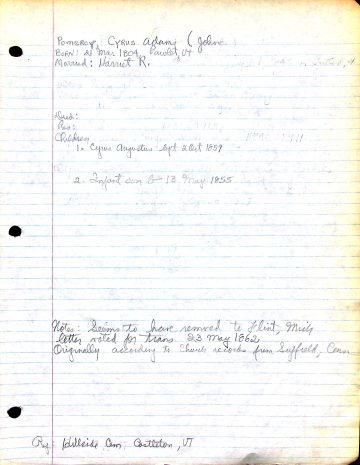 Pomeroy, Cyrus Adams (John
Born: 21 Mar 1804, Pawlet, VT
Married: Harriet R.
Died:
Res:
Children
1. Cyrus Augustus Sept 1859
2. Infant son b 13 May 1855
Notes: Seems to have removed to Flint, Mich
letter voted for trans. 23 May 1862
Originally according to Church records from Suffield, Conn
Hillside Cem. Castleton, VT